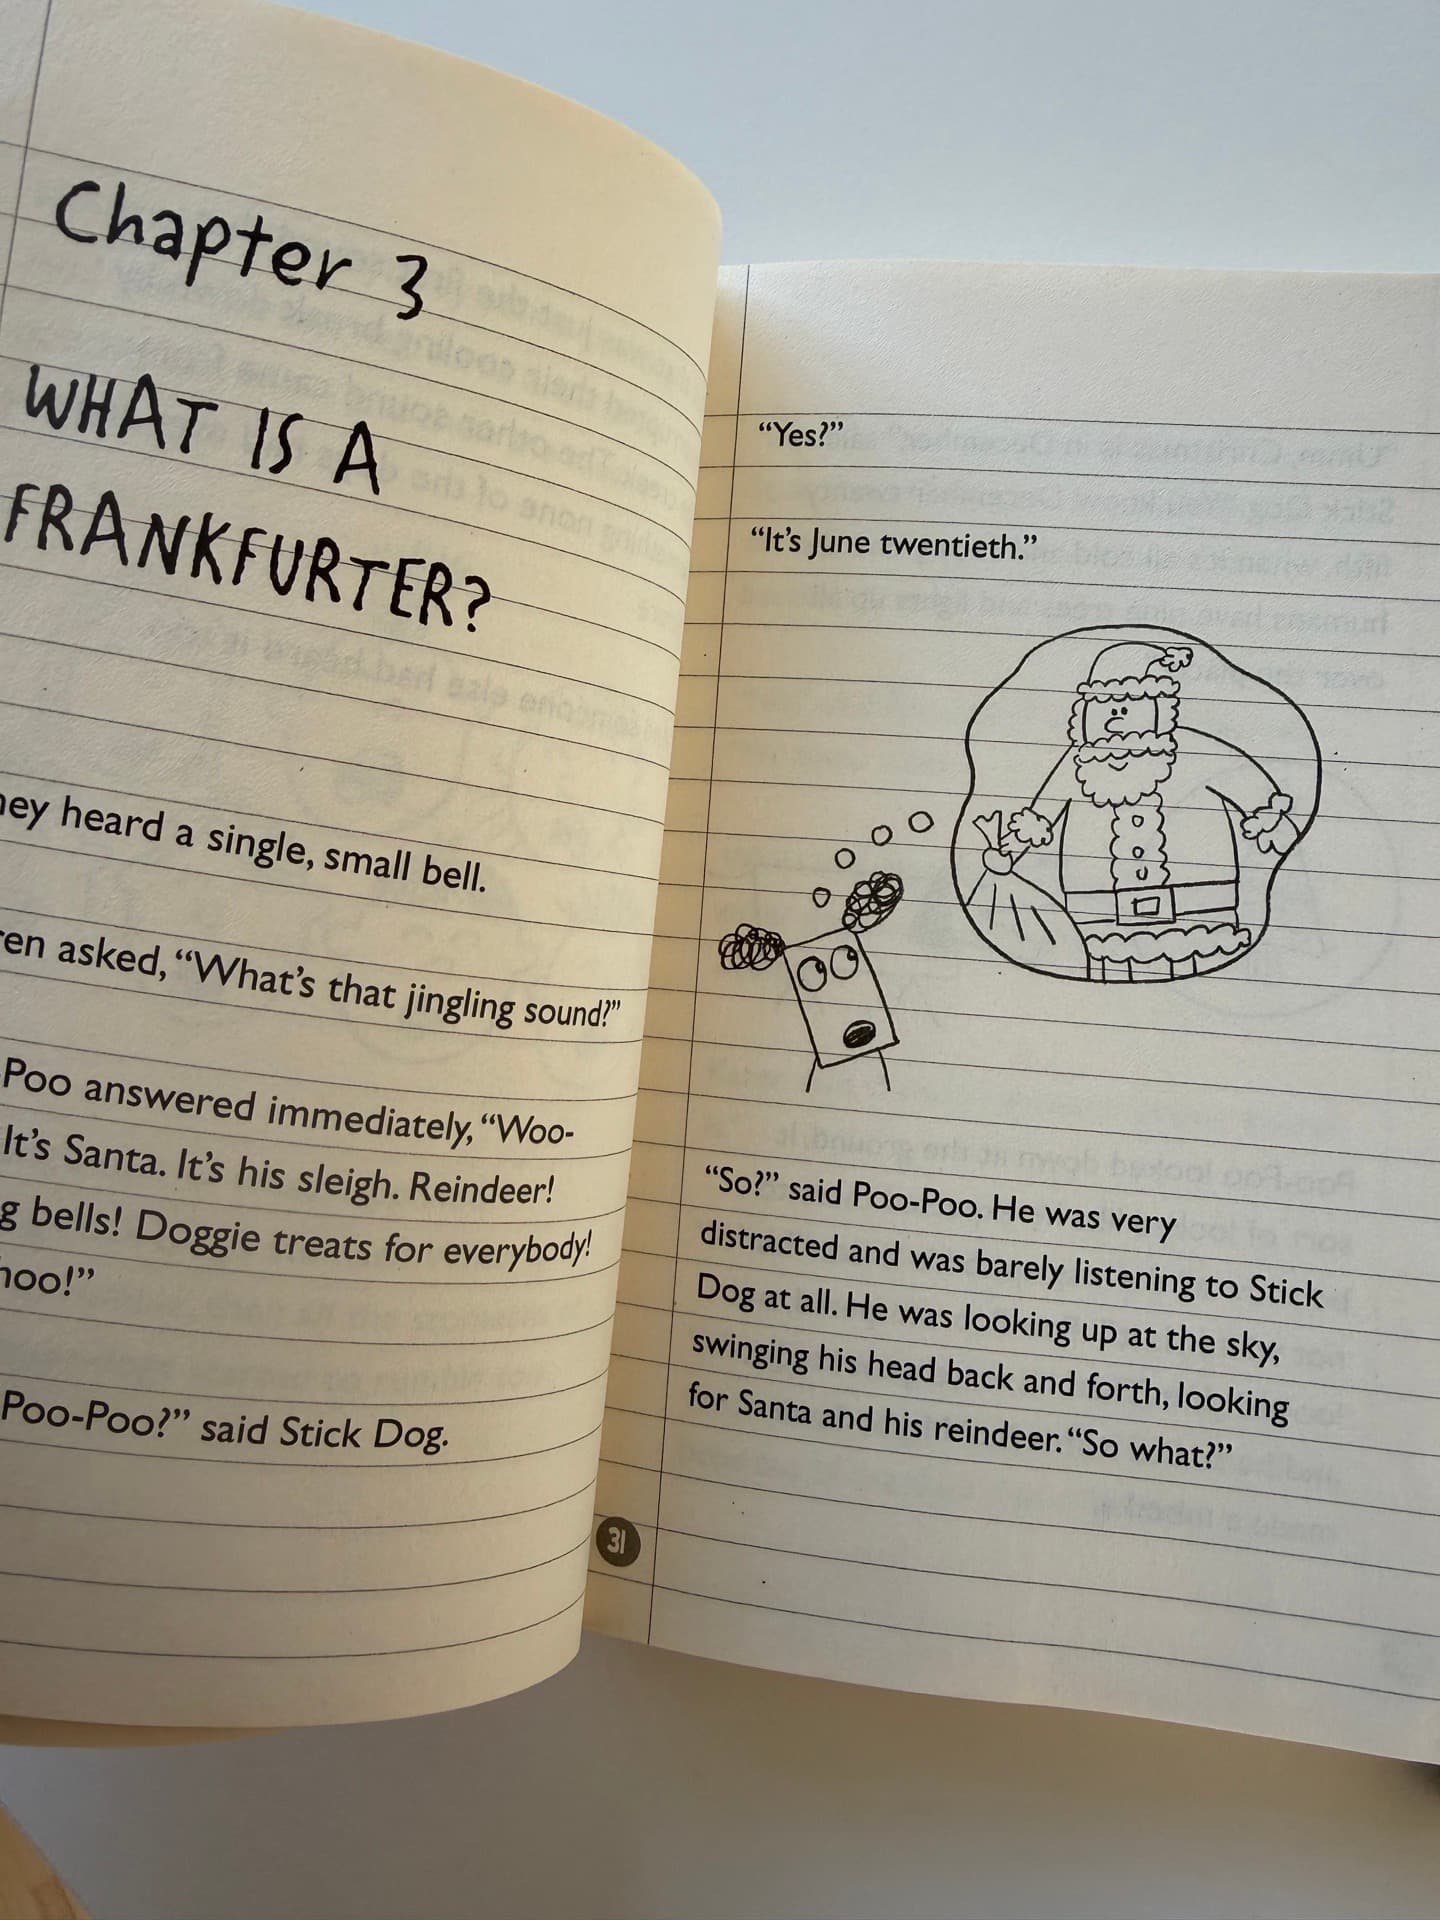 Chapter 3
WHAT IS A
FRANKFURTER?
heard a single, small bell.
asked, “What’s that jingling sound?”
Poo answered immediately, “Woo-
It’s Santa. It’s his sleigh. Reindeer!
bells! Doggie treats for everybody!
Poo-Poo?” said Stick Dog.
31
“Yes?”
“It’s June twentieth.”
“So?” said Poo-Poo. He was very
distracted and was barely listening to Stick
Dog at all. He was looking up at the sky,
swinging his head back and forth, looking
for Santa and his reindeer. “So what?”